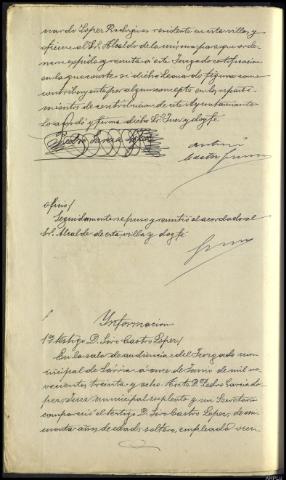 nardo López Rodríguez residente en esta villa, y
oficiese al Sr. Alcalde de la misma para que orde-
ne se expida y remita a este Juzgado certificacion
en la que conste si dicho Leonardo figura como
contribuyente por algun concepto en los reparti-
mientos de este termino de este Ayuntamiento
Lo acordó y firma dicho Sr. Juez; doy fé
Pedro García López
Ante mi
Oficio/
Seguidamente se puso y remitió el acordado al
Sr. Alcalde de esta villa y doy fé
Informacion
1er testigo D. Sivo Castro López/
En la sala de audiencia del Juzgado mu-
nicipal de Sarria a once de Junio de mil no-
vecientos treinta y ocho. Ante D. Pedro García Ló-
pez, Juez municipal suplente y su Secretario
compareció el testigo D. Sivo Castro López, de cin-
cuenta años de edad, soltero, empleado, vecin-